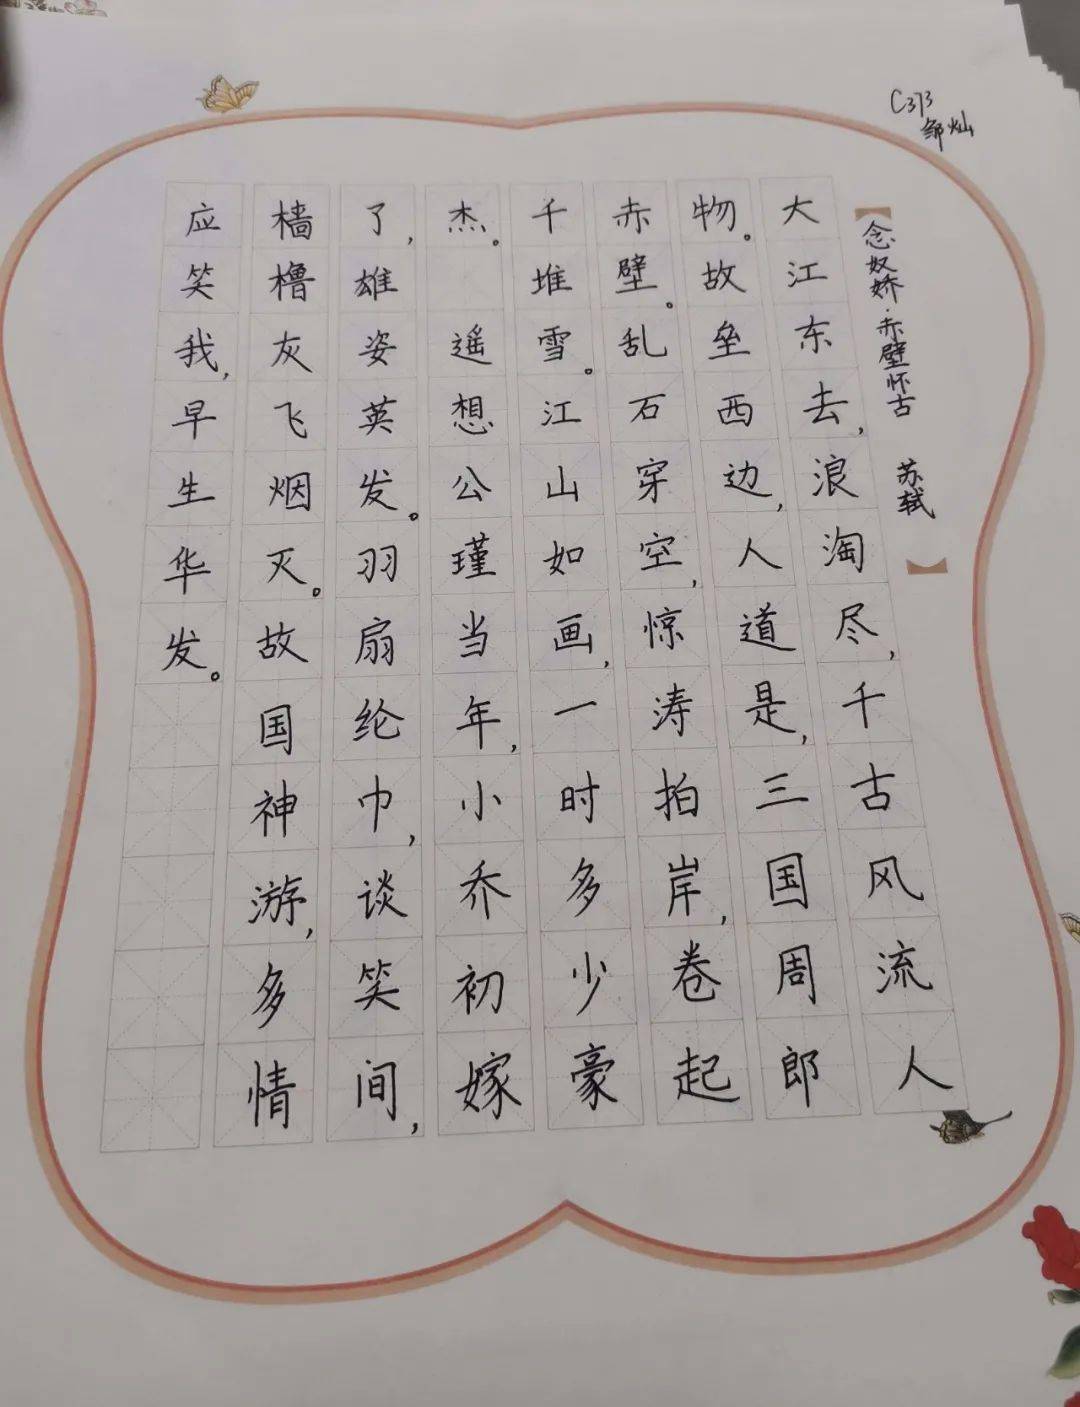 C373
邹灿
【念奴娇·赤壁怀古 苏轼】
大江东去,浪淘尽,千古风流人
物。故垒西边,人道是,三国周郎
赤壁。乱石穿空,惊涛拍岸,卷起
千堆雪。江山如画,一时多少豪
杰。 遥想公瑾当年,小乔初嫁
了,雄姿英发。羽扇纶巾,谈笑间,
樯橹灰飞烟灭。故国神游,多情
应笑我,早生华发。